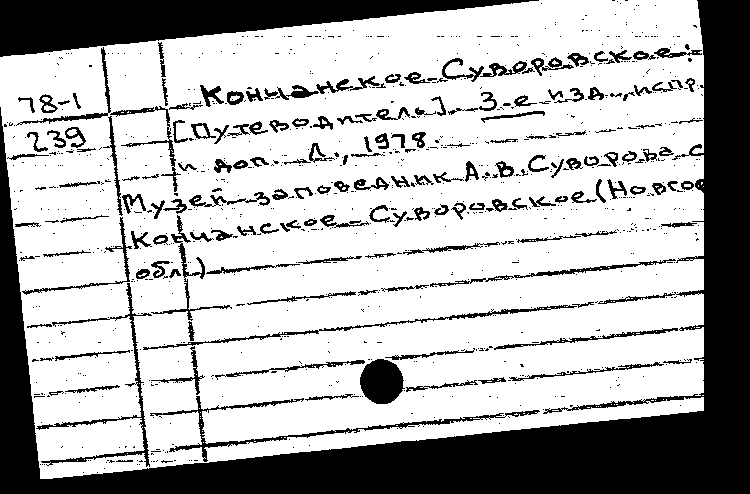 78-1
239
Кончанское-Суворовское:
[Путеводитель]. 3-е изд., испр.
и доп. Л., 1978.
Музей-заповедник А.В.Суворова с
Кончанское-Суворовское (Новгор
обл.)